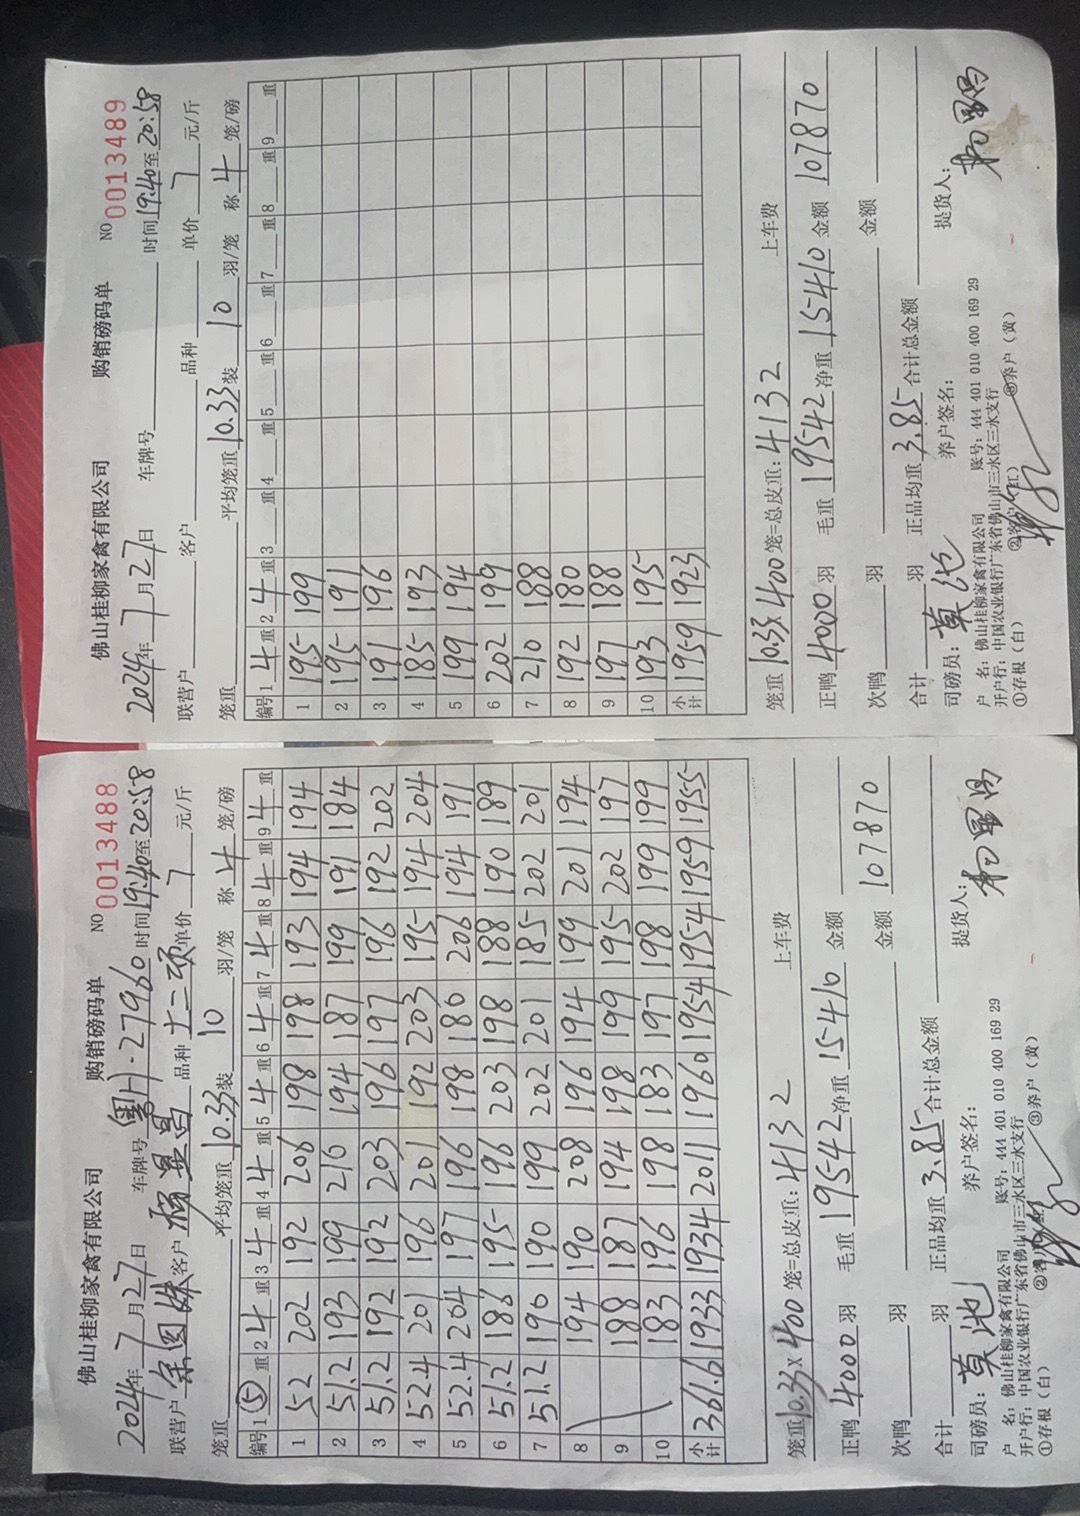 佛山桂柳家禽有限公司 购销磅码单 NO 0013488
2024年7月27日 车牌号 粤H·27960 时间19:40至20:58
联营户 余国妹 客户 杨显昌 品种 十二项 单价 7 元/斤
笼重 平均笼重 10.33 装 10 羽/笼 称 4 笼/磅
编号 1 ⑤ 重 2 4 重 3 4 重 4 4 重 5 4 重 6 4 重 7 4 重 8 4 重 9 4 重
1 52 202 192 206 198 198 193 194 194
2 51.2 193 199 210 194 187 199 191 184
3 51.2 192 192 203 196 197 196 192 202
4 52.4 201 196 201 192 203 195 194 204
5 52.4 204 197 196 198 180 206 194 191
6 51.2 186 195 196 203 198 188 190 189
7 51.2 190 190 199 202 201 185 202 201
8 194 190 208 196 194 199 201 194
9 188 187 194 198 199 195 202 197
10 183 196 198 183 197 198 199 199
小计 361.6 1933 1934 2011 1960 1954 1954 1959 1955
笼重 10.33 × 400 笼=总皮重: 4132 上车费
正鸭 4000 羽 毛重 19542 净重 15410 金额
次鸭 羽 金额 107870
合计 羽 正品均重 3.85 合计总金额
司磅员: 莫池 养户签名: 提货人: 杨显昌
户 名: 佛山桂柳家禽有限公司 账号: 444 401 010 400 169 29
开户行: 中国农业银行广东省佛山市三水区三水支行
①存根(白) ②客户(红) ③养户(黄)
佛山桂柳家禽有限公司 购销磅码单 NO 0013489
2024年7月27日 车牌号 时间19:40至20:58
联营户 客户 品种 单价 7 元/斤
笼重 平均笼重 10.33 装 10 羽/笼 称 4 笼/磅
编号 1 4 重 2 4 重 3 重 4 重 5 重 6 重 7 重 8 重 9 重
1 195 199
2 195 191
3 191 196
4 185 193
5 199 194
6 202 199
7 210 188
8 192 180
9 197 188
10 193 195
小计 1959 1923
笼重 10.33 × 400 笼=总皮重: 4132 上车费
正鸭 4000 羽 毛重 19542 净重 15410 金额 107870
次鸭 羽 金额
合计 羽 正品均重 3.85 合计总金额
司磅员: 莫池 养户签名: 提货人: 杨显昌
户 名: 佛山桂柳家禽有限公司 账号: 444 401 010 400 169 29
开户行: 中国农业银行广东省佛山市三水区三水支行
①存根(白) ②客户(红) ③养户(黄)